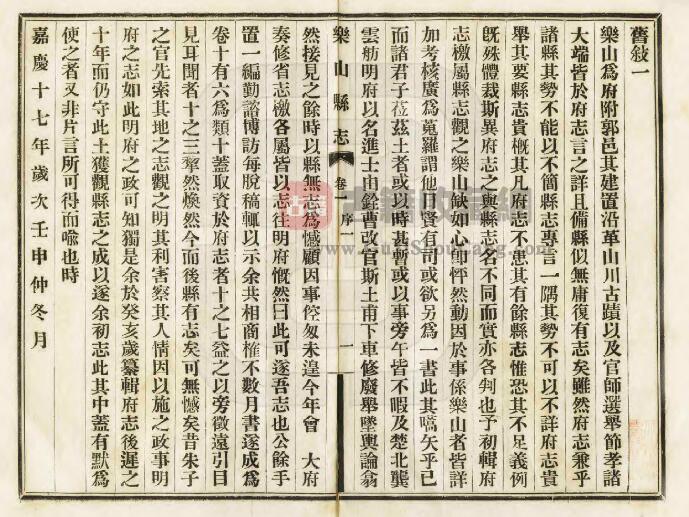 舊敍一
樂山爲府附郭邑其建置沿革山川古蹟以及官師選舉節孝諸
大端皆於府志言之詳且備縣似無庸復有志矣雖然府志兼乎
諸縣其勢不能以不簡縣志專言一隅其勢不可以不詳府志貴
舉其要縣志貴槪其凡府志不患其有餘縣志惟恐其不足義例
旣殊體裁斯異府志之與縣志名不同而實亦各判也予初輯府
志檄屬縣志觀之樂山缺如心卽怦然動因於事係樂山者皆詳
加考核廣爲蒐羅謂他日賢有司或欲另爲一書此其嚆矢乎已
而諸君子莅茲土者或以時甚暫或以事旁午皆不暇及楚北龔
雲舫明府以名進士由銓曹改官斯土甫下車修廢舉墜輿論翕
樂山縣志
卷一
序一
一
然接見之餘時以縣無志爲憾顧因事倥匆未遑今年會 大府
奏修省志檄各屬皆以志往明府慨然曰此可遂吾志也公餘手
置一編勤諮博訪每脫稿輒以示余共相商榷不數月書遂成爲
卷十有六爲類十蓋取資於府志者十之七益之以旁徵遠引目
見耳聞者十之三犂然煥然今而後縣有志矣可無憾矣昔朱子
之官先索其地之志觀之明其利害察其人情因以施之政事明
府之志如此明府之政可知獨是余於癸亥歲纂輯府志後遲之
十年而仍守此土獲觀縣志之成以遂余初志此其中蓋有默爲
使之者又非片言所可得而喩也時
嘉慶十七年歲次壬申仲冬月